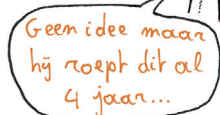 Geen idee maar
hij roept dit al
4 jaar...